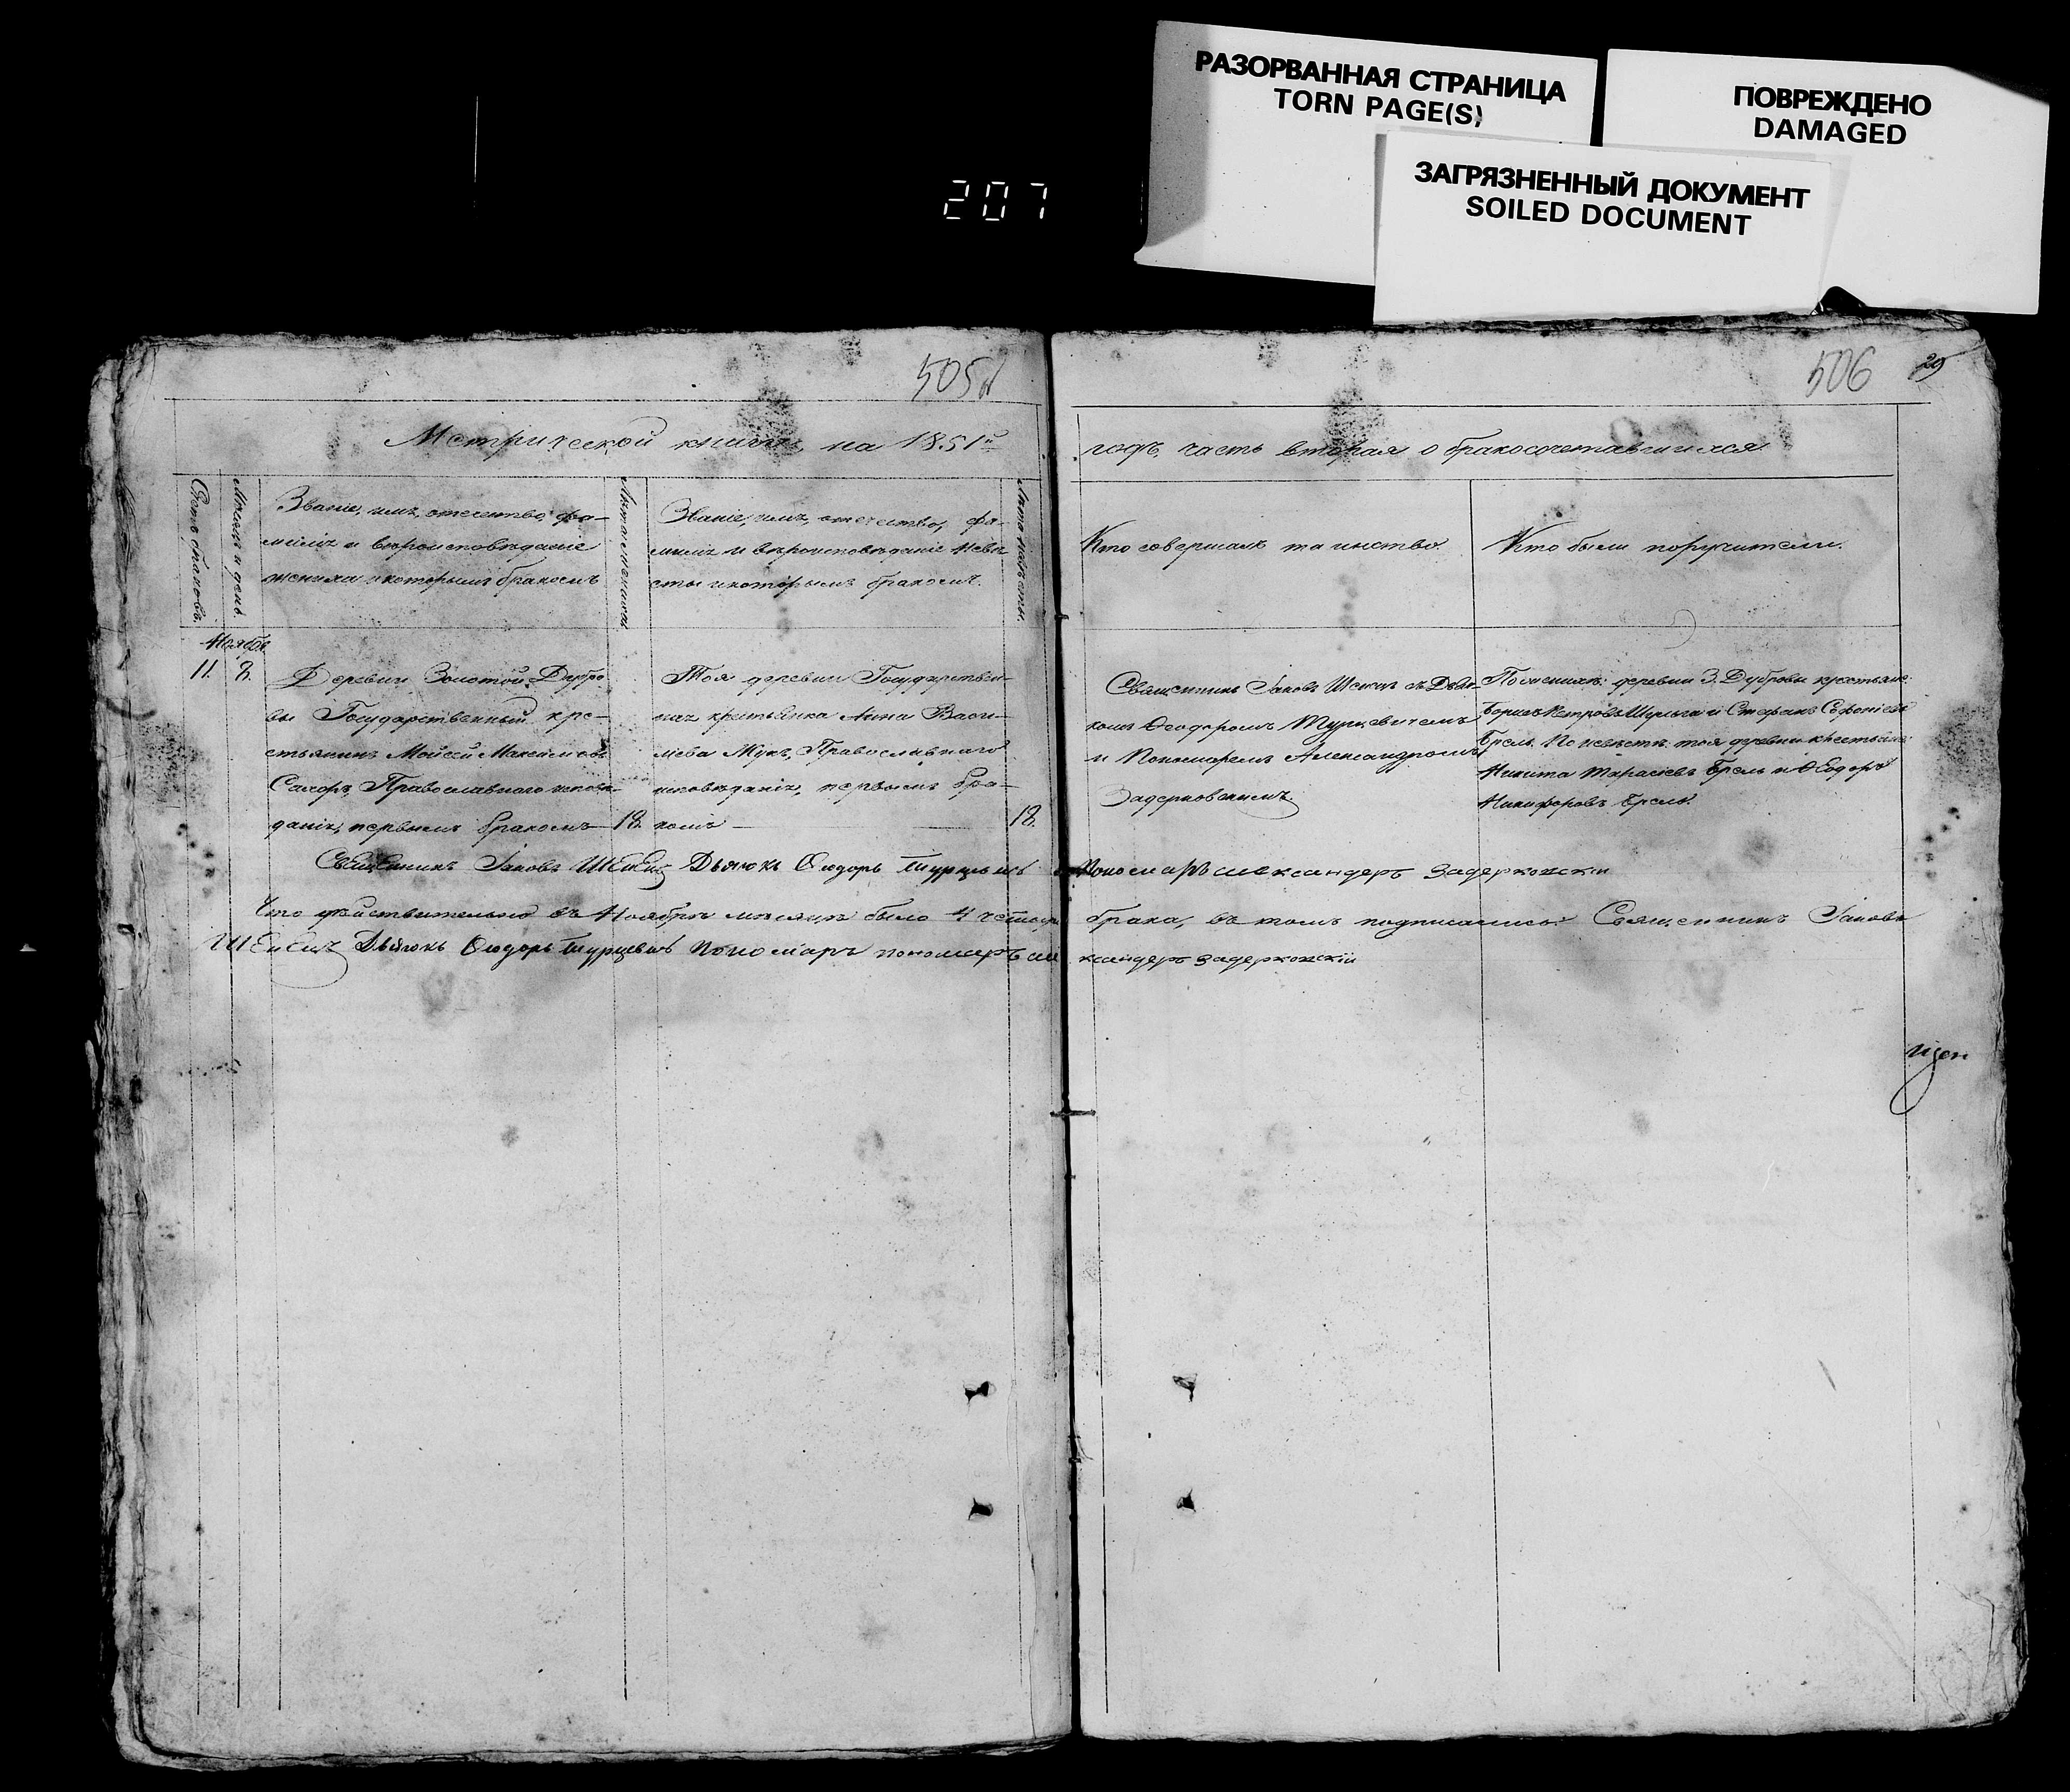 РАЗОРВАННАЯ СТРАНИЦА
TORN PAGE(S)
ПОВРЕЖДЕНО
DAMAGED
ЗАГРЯЗНЕННЫЙ ДОКУМЕНТ
SOILED DOCUMENT
207
505
506
29
Метрической книги, на 1851й
годъ, часть вторая о бракосочетавшихся.
Счетъ браковъ.
Мѣсяцъ и день.
Званіе, имя, отечество, фа-
милія и вѣроисповѣданіе
жениха и которымъ бракомъ
Лѣта жениха
Званіе, имя, отечество, фа-
милія и вѣроисповѣданіе невѣ
сты и которымъ бракомъ.
Лѣта невѣсты.
Кто совершалъ таинство.
Кто были поручители.
Ноября
11. 8.
Деревни Золотой Дубро
вы Государственный кре-
стьянинъ Моисей Максимовъ
Православнаго исповѣ-
данія, первымъ бракомъ
18.
Тоя деревни Государствен-
ная крестьянка Анна Васи-
льева Жукъ, Православнаго
исповѣданія, первымъ бра-
комъ
18.
Священникъ Іаковъ Шеецъ съ Дьяч-
комъ Ѳеодоромъ Турцевичемъ
и Пономаремъ Александромъ
Задерковскимъ.
По женихѣ: деревни З. Дубровы крестьяне:
Борисъ Петровъ Шульга и Стефанъ Софоніевъ
Брель. По невѣстѣ: тоя деревни крестьяне:
Никита Тарасіевъ Брель и Ѳеодоръ
Никифоровъ Брель.
Священникъ Іаковъ Дьячокъ Ѳиодоръ Турцевичъ Пономаръ александеръ Задерковскій
Что дѣйствительно въ Ноябрѣ мѣсяцѣ было 4 четыре брака, въ томъ подписались: Священникъ Іаковъ
Дьячокъ Ѳиодоръ Турцевичъ Пономаръ пономаръ александеръ Задерковскій